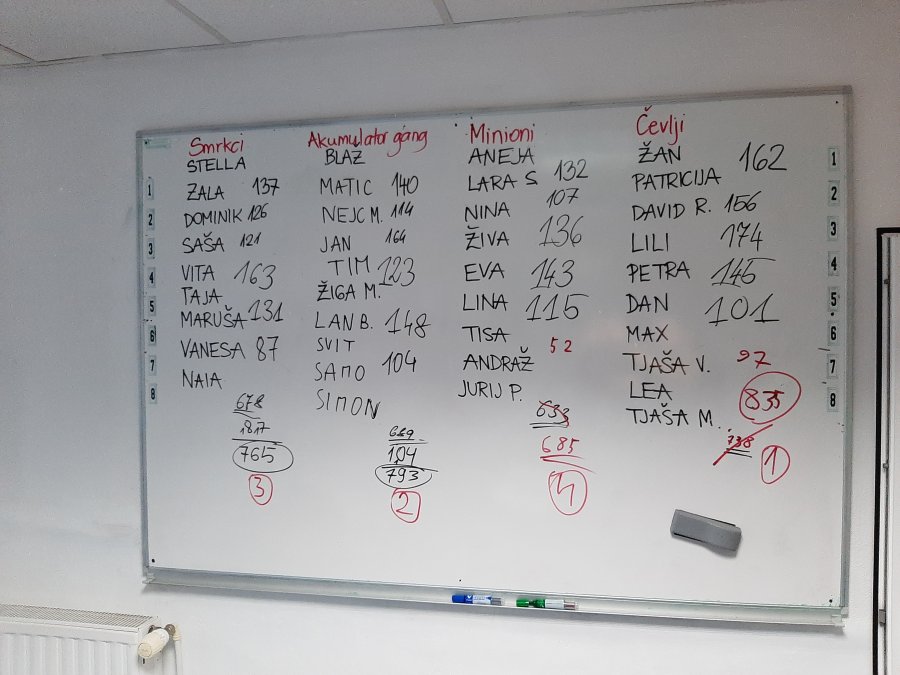 Smrkci
STELLA
ZALA 137
DOMINIK 126
SAŠA 121
VITA 163
TAJA
MARUŠA 131
VANESA 87
NAIA
678
187
765
3
Akumulator gang
BLAŽ
MATIC 140
NEJC M. 114
JAN 164
TIM 123
ŽIGA M.
LAN B. 148
SVIT
SAMO 104
SIMON
689
104
793
2
Minioni
ANEJA
LARA S 132
NINA 107
ŽIVA 136
EVA 143
LINA 115
TISA
ANDRAŽ 52
JURIJ P.
633
685
4
Čevlji
ŽAN 162
PATRICIJA
DAVID R. 156
LILI 174
PETRA 145
DAN 101
MAX
TJAŠA V. 97
LEA 835
TJAŠA M.
738
1
1
2
3
4
5
6
7
8
1
2
3
4
5
6
7
8